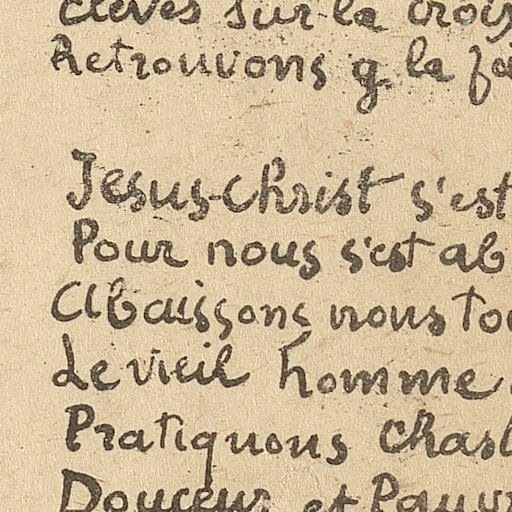 élevés sur la crois
Retrouvons q la
Jesus-Christ s'est
Pour nous s'est ab
Abaissons nous to
Le vieil homme
Pratiquons chast
Douceur et Pauvr